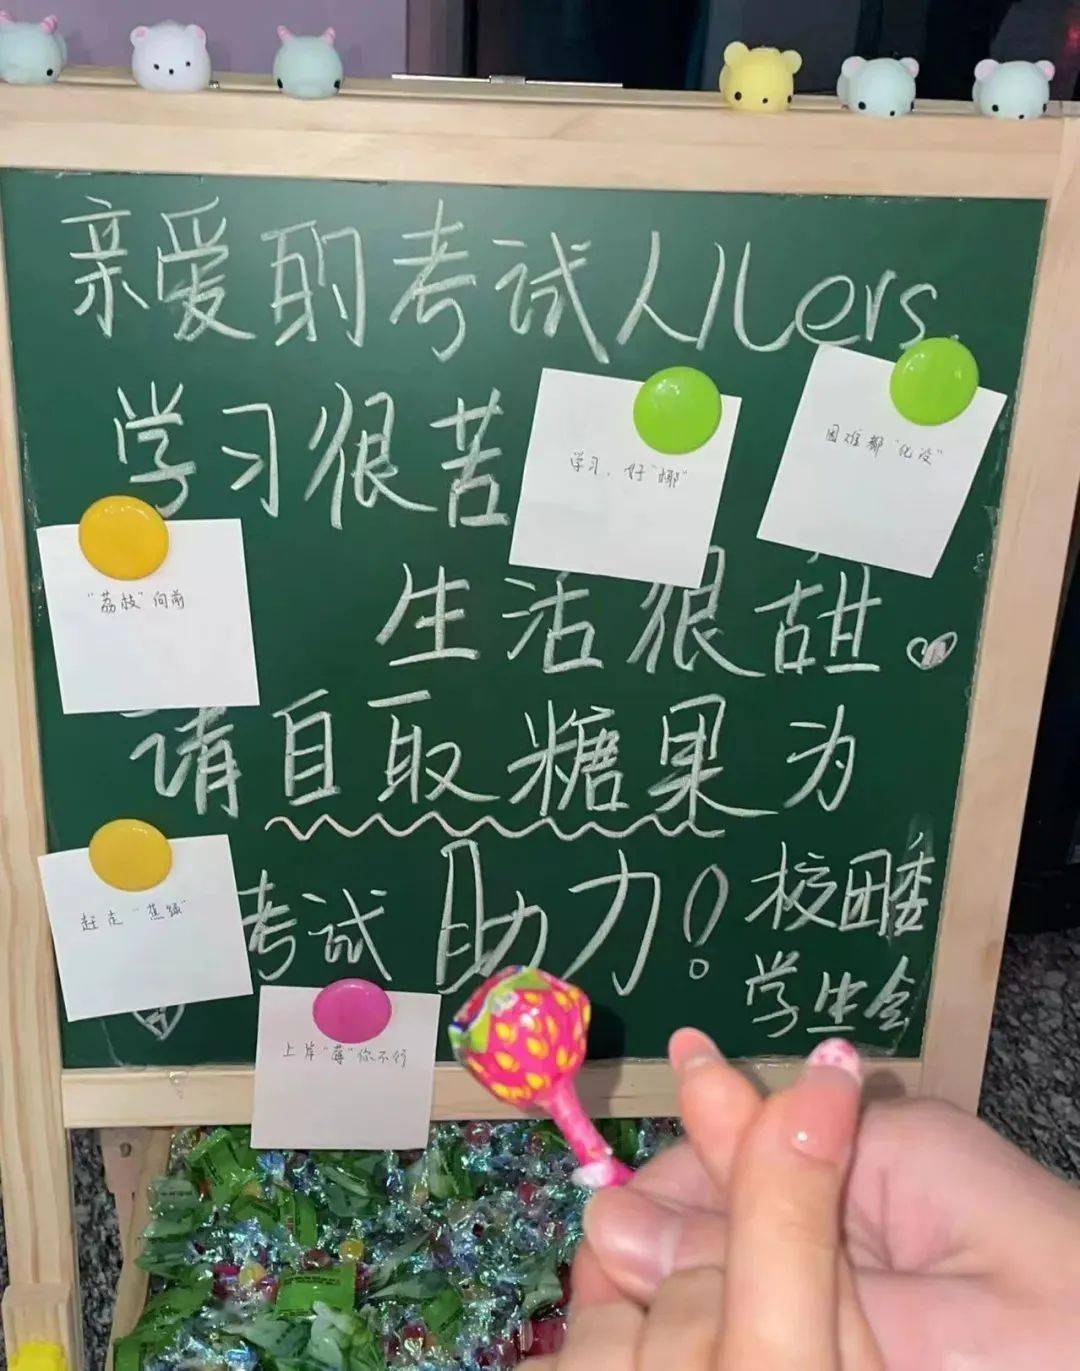 亲爱的考试人儿ers.
学习很苦
学习，好"椰"
困难都"化没"
"荔枝"向前
生活很甜
请自取糖果为
赶走"蕉绿"
考试助力！
校团委
学生会
上岸"莓"你不行